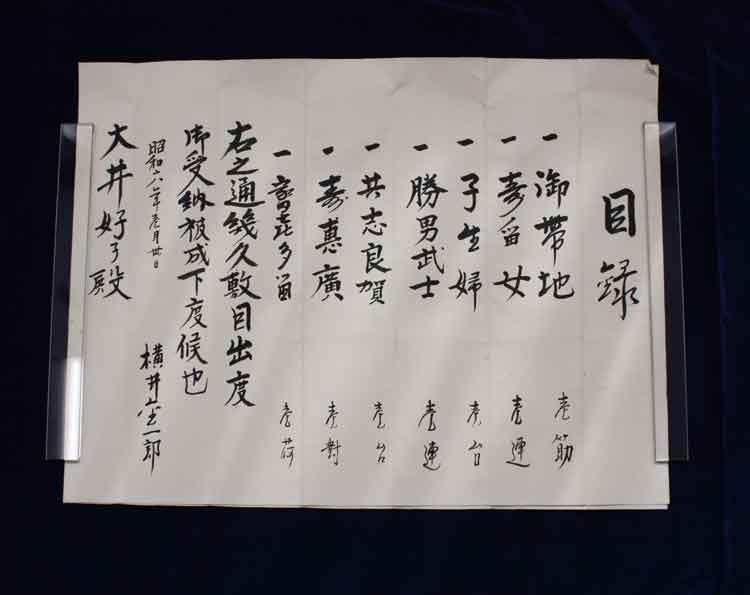 目録
一 御帯地 壱筋
一 寿留女 壱連
一 子生婦 壱台
一 勝男武士 壱連
一 共志良賀 壱台
一 寿恵廣 壱對
一 富喜多留 壱荷
右之通幾久敷目出度
御受納被成下度候也
昭和六年壱月廿日
横井 一郎
大井好子殿